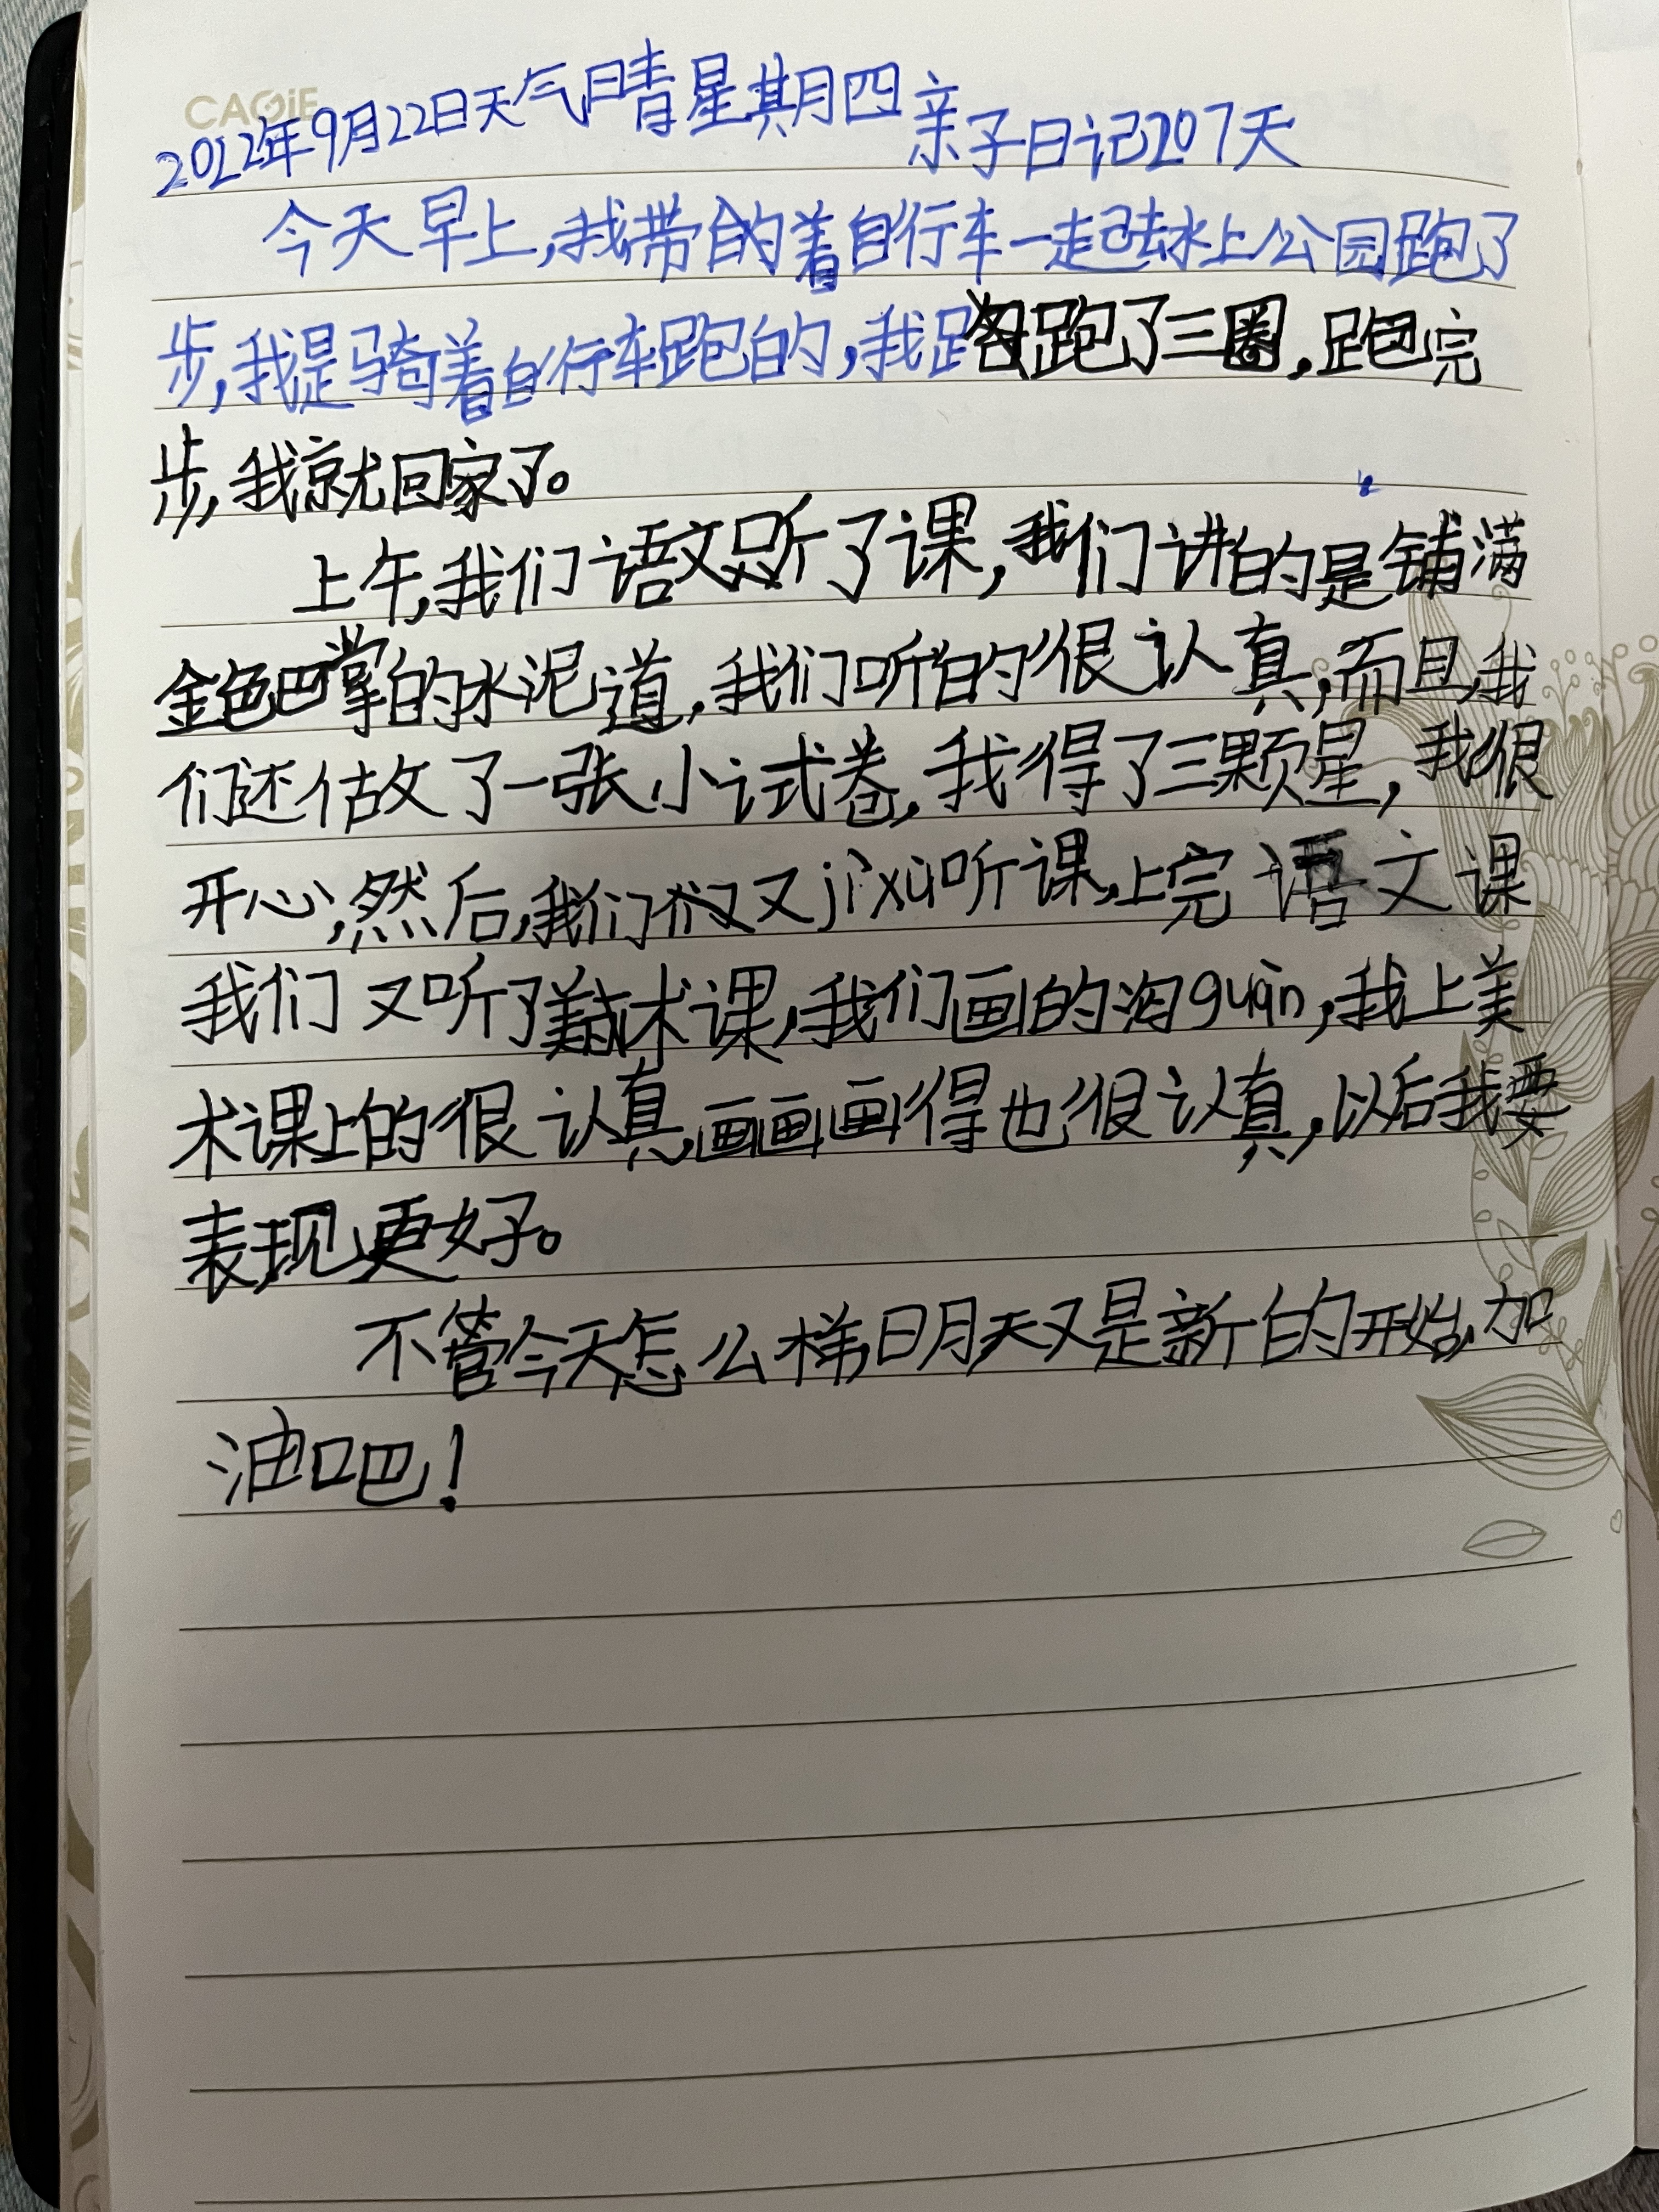 CAGIE
2022年9月22日天气晴星期四亲子日记207天
今天早上,我带着自行车一起去水上公园跑了
步,我是骑着自行车跑的,我跑了三圈,跑完
步,我就回家了。
上午,我们语文听了课,我们讲的是铺满
金色巴掌的水泥道,我们听的很认真,而且我
们还做了一张小试卷,我得了三颗星,我很
开心,然后,我们又jìxù听课,上完语文课
我们又听了美术课,我们画的淘guàn,我上美
术课上的很认真,画画画得也很认真,以后我要
表现更好。
不管今天怎么样,明天又是新的开始,加
油吧!